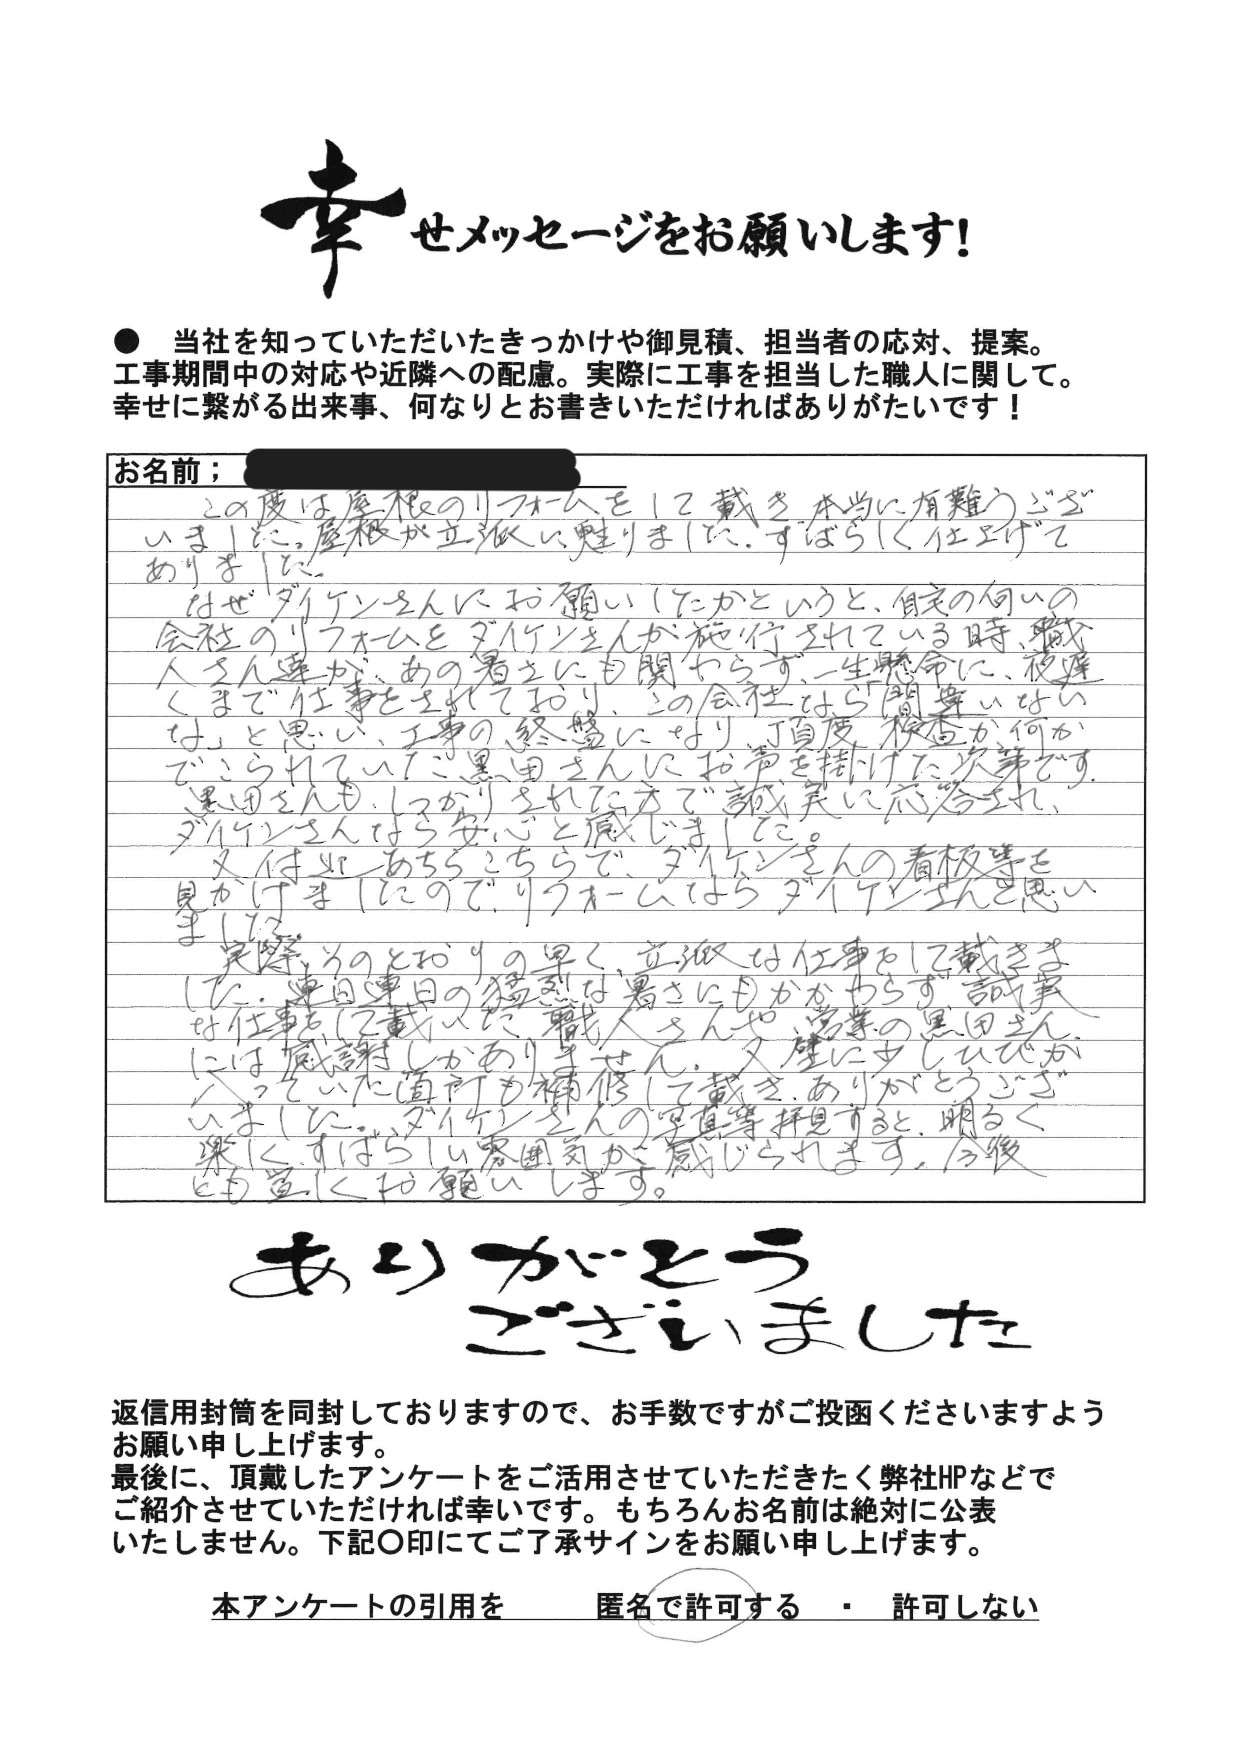 幸せメッセージをお願いします!
● 当社を知っていただいたきっかけや御見積、担当者の応対、提案。
工事期間中の対応や近隣への配慮。実際に工事を担当した職人に関して。
幸せに繋がる出来事、何なりとお書きいただければありがたいです！
お名前；
この度は屋根のリフォームをして戴き、本当に有難うござ
いました。屋根が立派に甦りました。すばらしく仕上げて
ありました。
なぜダイケンさんにお願いしたかというと、自宅の向いの
会社のリフォームをダイケンさんが施行されている時、職
人さん達が、あの暑さにも関わらず、一生懸命に、夜遅
くまで仕事をされており、この会社なら「間違いない
な」と思い、工事の終盤になり、丁度検査か何か
でこられていた黒田さんにお声を掛けた次第です。
黒田さんも、しっかりされた方で誠実に応答され、
ダイケンさんなら安心と感じました。
又付近あちらこちらで、ダイケンさんの看板等を
見かけましたので、リフォームならダイケンさんと思い
ました。
実際、そのとおりの早く、立派な仕事をして戴きま
した。連日連日の猛烈な暑さにもかかわらず誠実
な仕事をして戴いた、職人さんや、営業の黒田さん
には感謝しかありません。又壁に少しひびが
入っていた箇所も補修して戴き、ありがとうござ
いました。ダイケンさんの写真等拝見すると、明るく
楽しく、すばらしい雰囲気が感じられます。今後
とも宜しくお願いします。
ありがとう
ございました
返信用封筒を同封しておりますので、お手数ですがご投函くださいますよう
お願い申し上げます。
最後に、頂戴したアンケートをご活用させていただきたく弊社HPなどで
ご紹介させていただければ幸いです。もちろんお名前は絶対に公表
いたしません。下記〇印にてご了承サインをお願い申し上げます。
本アンケートの引用を 匿名で許可する ・ 許可しない